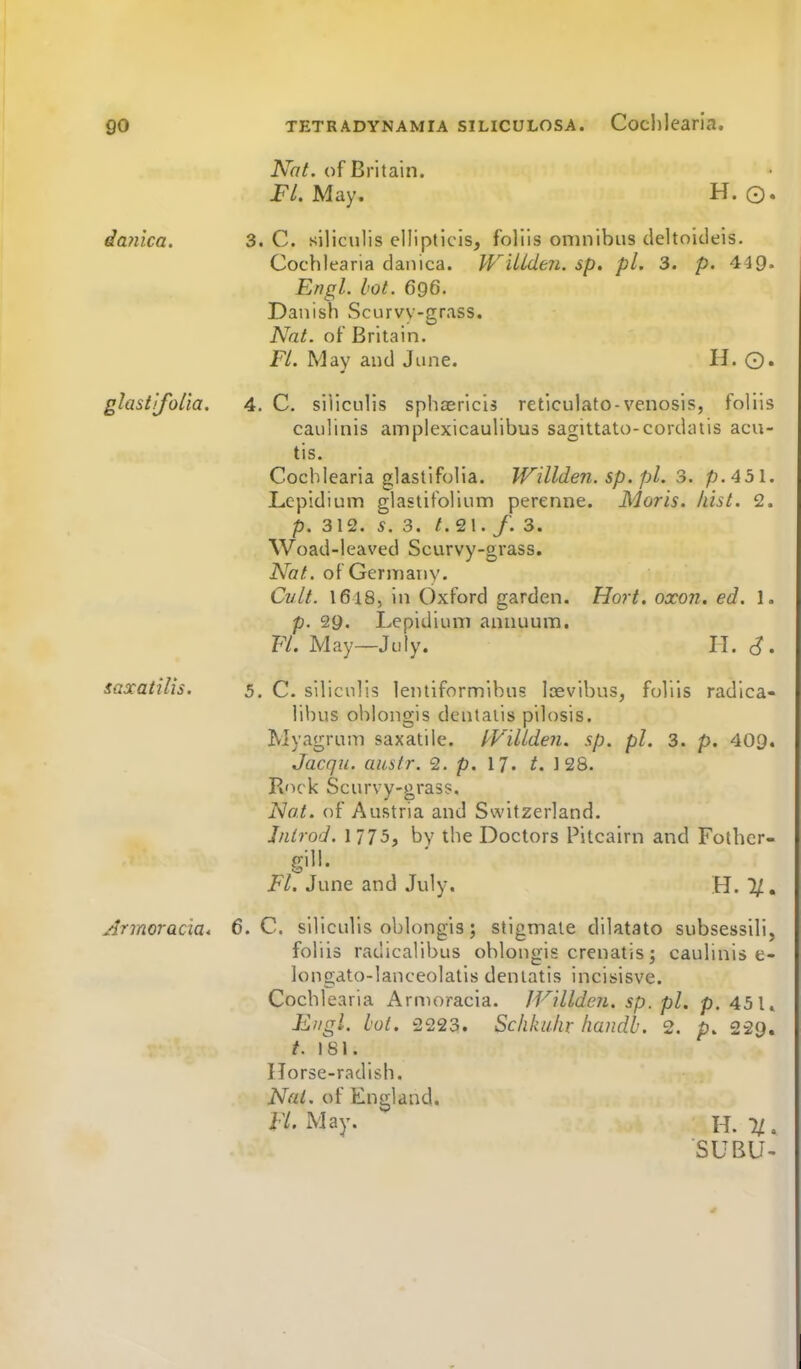 90 TETRADYNAMIA SILICULOSA. Cochlearia.
Nat. of Britain.
Fl. May. H. ☉.
danica. 3. C. siliculis ellipticis, foliis omnibus deltoideis.
Cochlearia danica. Willden. sp. pl. 3. p. 449.
Engl. bot. 696.
Danish Scurvy-grass.
Nat. of Britain.
Fl. May and June. H. ☉.
glastifolia. 4. C. siliculis sphæricis reticulato-venosis, foliis
caulinis amplexicaulibus sagittato-cordatis acu-
tis.
Cochlearia glastifolia. Willden. sp. pl. 3. p. 451.
Lepidium glastifolium perenne. Moris. hist. 2.
p. 312. s. 3. t. 21. f. 3.
Woad-leaved Scurvy-grass.
Nat. of Germany.
Cult. 1648, in Oxford garden. Hort. oxon. ed. 1.
p. 29. Lepidium annuum.
Fl. May—July. H. ♂.
saxatilis. 5. C. siliculis lentiformibus lævibus, foliis radica-
libus oblongis dentatis pilosis.
Myagrum saxatile. Willden. sp. pl. 3. p. 409.
Jacqu. austr. 2. p. 17. t. 128.
Rock Scurvy-grass.
Nat. of Austria and Switzerland.
Introd. 1775, by the Doctors Pitcairn and Fother-
gill.
Fl. June and July. H. ♃.
Armoracia. 6. C. siliculis oblongis; stigmate dilatato subsessili,
foliis radicalibus oblongis crenatis; caulinis e-
longato-lanceolatis dentatis incisisve.
Cochlearia Armoracia. Willden. sp. pl. p. 451.
Engl. bot. 2223. Schkuhr handb. 2. p. 229.
t. 181.
Horse-radish.
Nat. of England.
Fl. May. H. ♃.
SUBU-